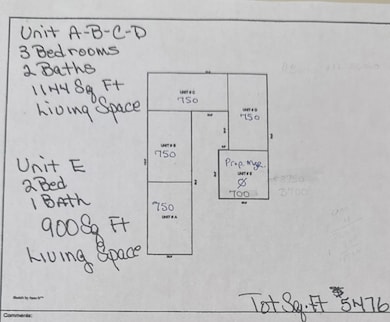 Unit A-B-C-D
3 Bedrooms
2 Baths
1144 Sq Ft
Living Space
UNIT # C
750
UNIT # D
750
UNIT # B
750
Prop. Mgr.
UNIT # E
700
750
UNIT # A
Unit E
2 Bed
1 BATH
900 Sq Ft
Living Space
Tot Sq. Ft 5476
Comments: